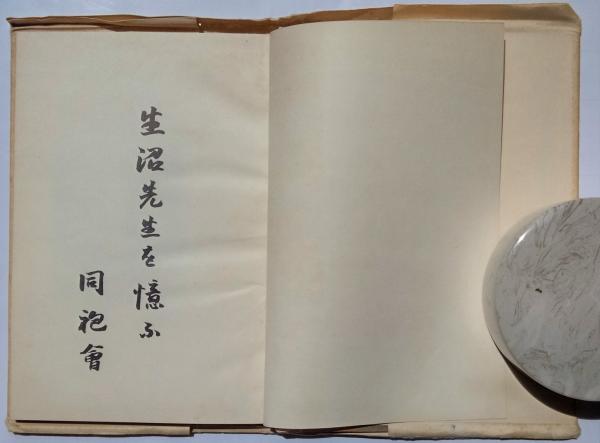 生沼先生を憶ふ
同袍會